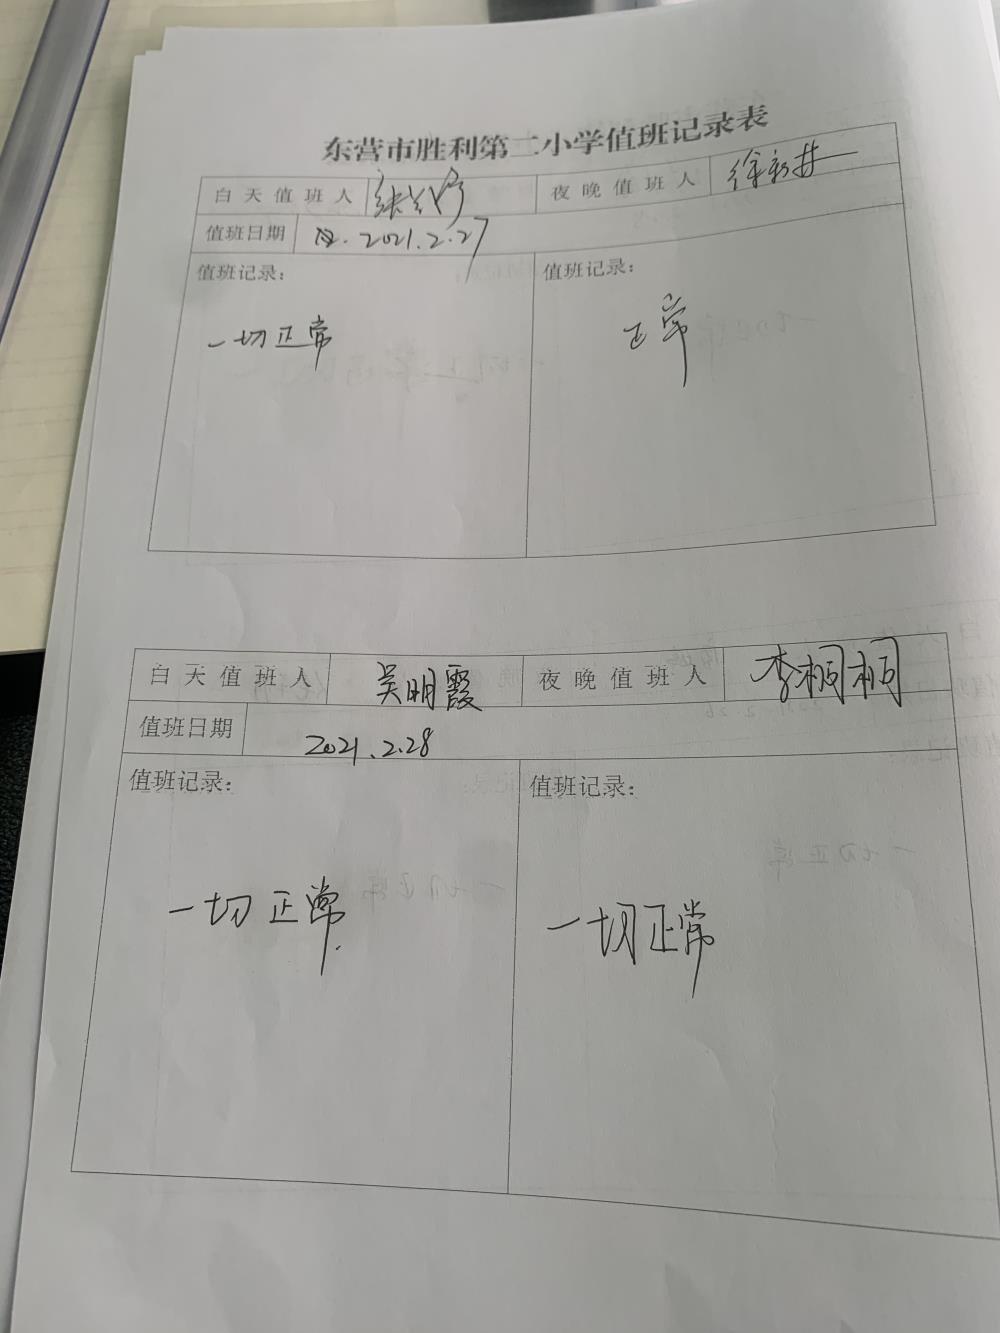 东营市胜利第二小学值班记录表
白天值班人 夜晚值班人 徐新井
值班日期 2021.2.27
值班记录： 值班记录：
一切正常 正常
白天值班人 吴明霞 夜晚值班人 李桐桐
值班日期 2021.2.28
值班记录： 值班记录：
一切正常 一切正常